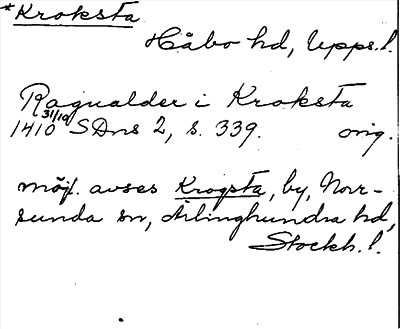 *Kroksta
Håbo hd, Upps.l.
Ragualder i Kroksta
31/10
1410 SDns 2, s. 339. orig.
möjl. avses Krogsta, by, Norr-
sunda sn, Ärlinghundra hd,
Stockh. l.